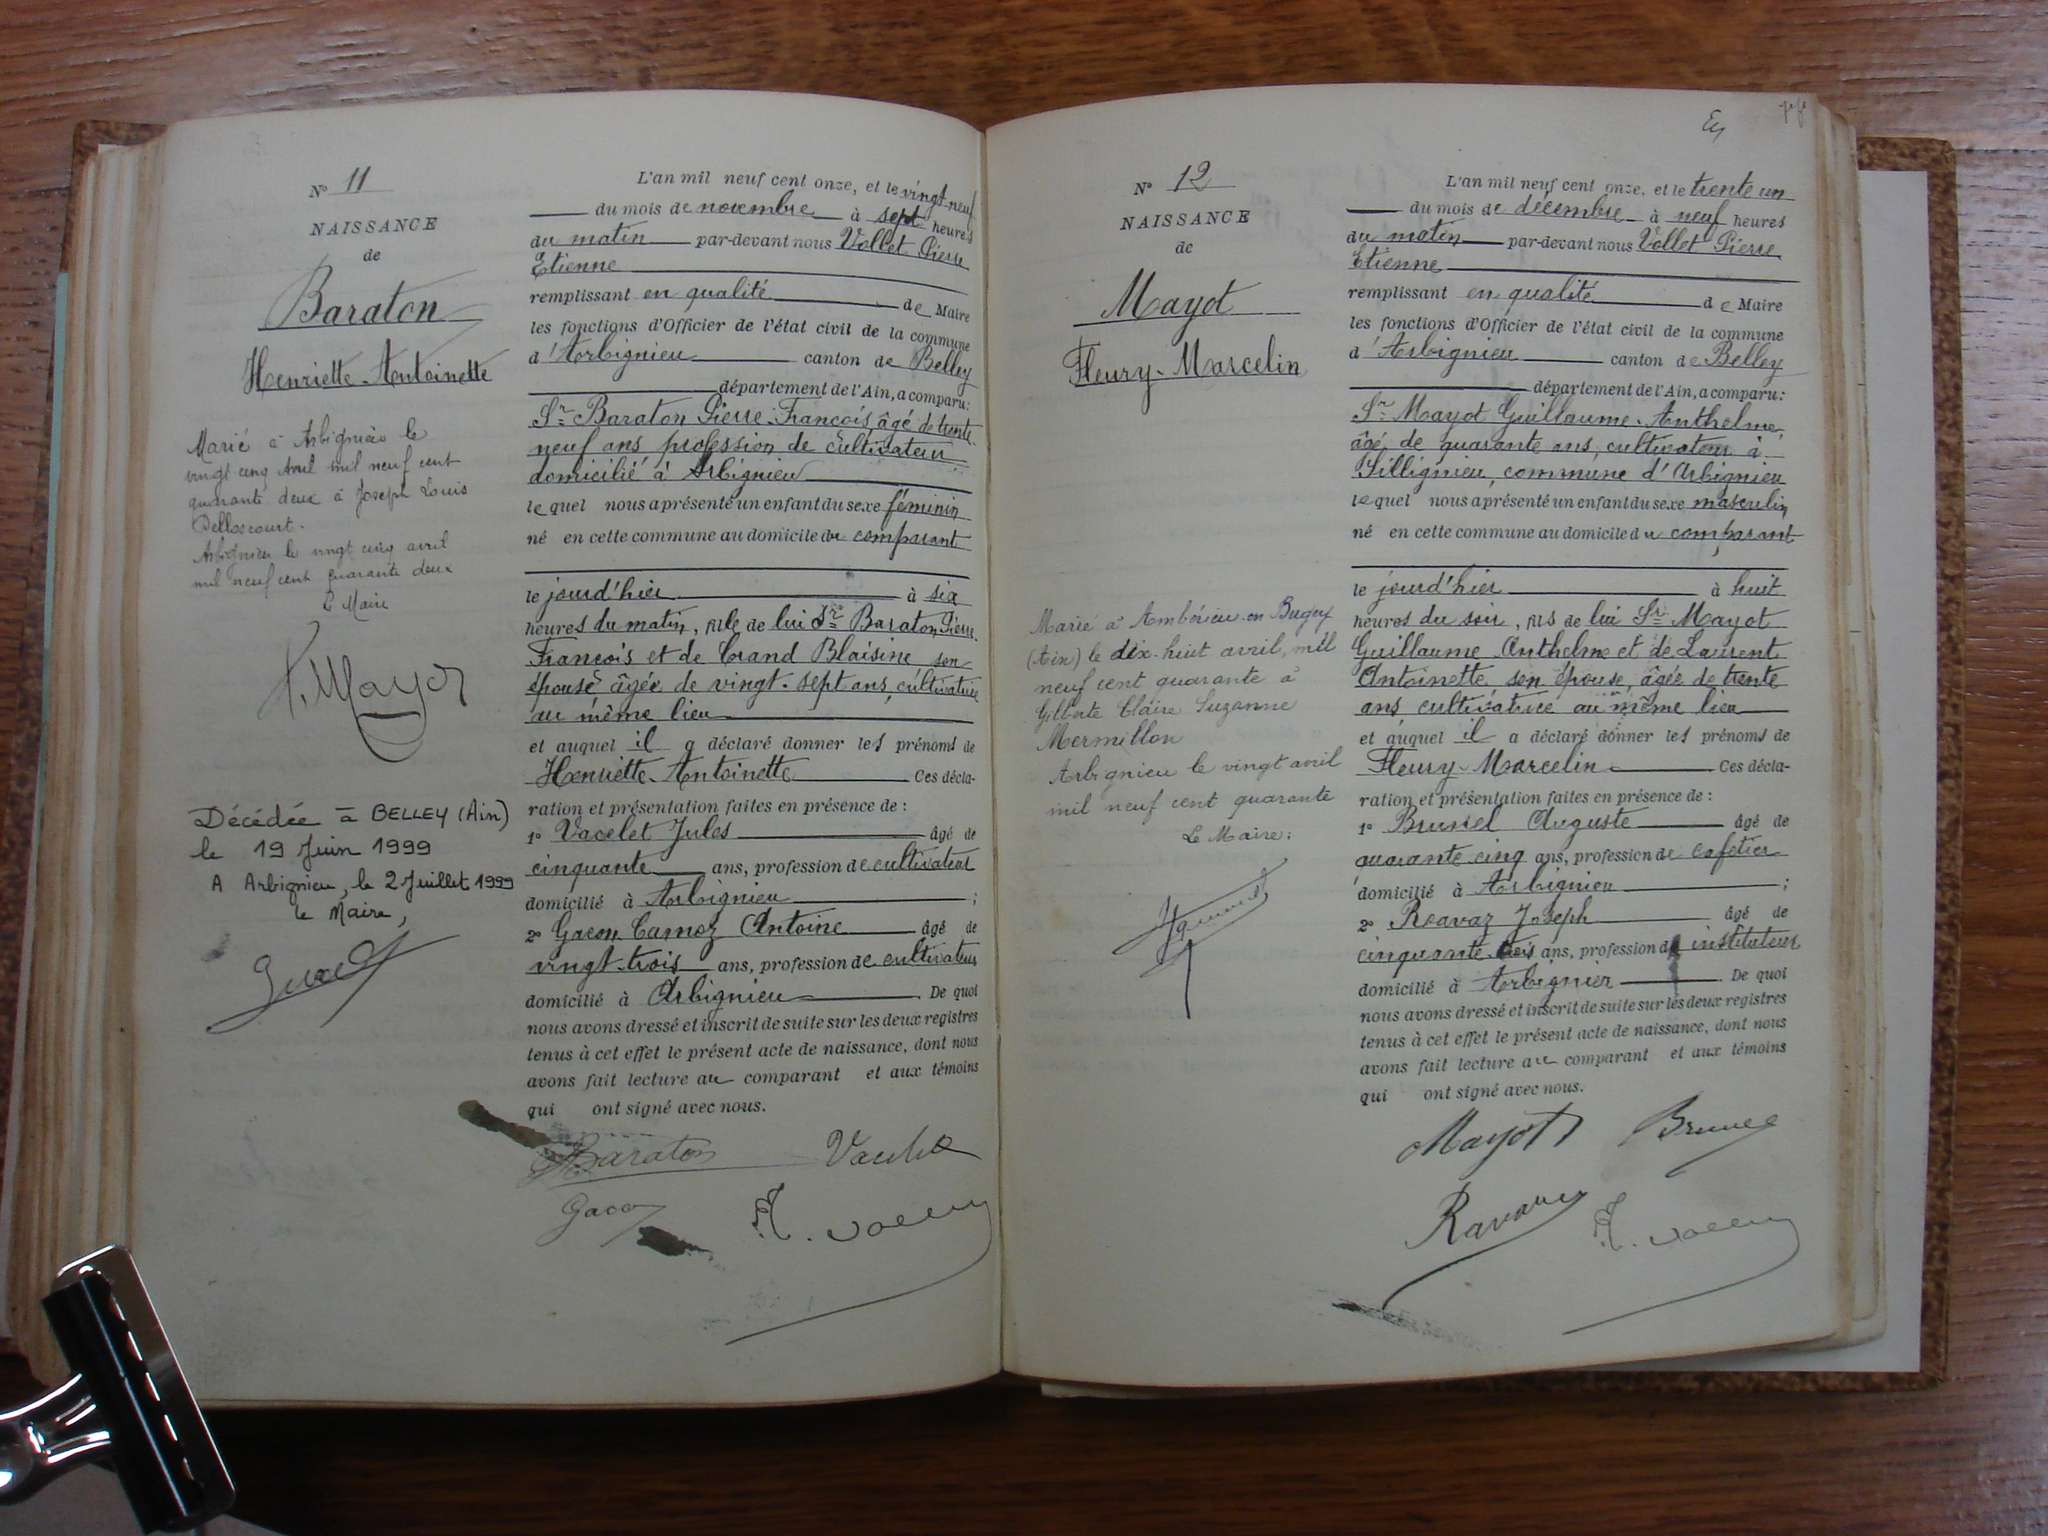 N° 11
NAISSANCE
de
Baraton
Henriette-Antoinette
Marié à Arbignieu le
vingt cinq Avril mil neuf cent
quarante deux à Joseph Louis
Delloscourt.
Arbignieu le vingt cinq avril
mil neuf cent quarante deux
Le Maire
Mayot
Décédée à BELLEY (Ain)
le 19 Juin 1999
A Arbignieu, le 2 Juillet 1999
Le Maire,
L'an mil neuf cent onze, et le vingt-neuf
du mois de novembre à sept heures
du matin par-devant nous Vollet Pierre
Etienne
remplissant en qualité de Maire
les fonctions d'Officier de l'état civil de la commune
d'Arbignieu canton de Belley
département de l'Ain, a comparu:
Sr Baraton Pierre-François, âgé de trente-
neuf ans profession de cultivateur
domicilié à Arbignieu
lequel nous a présenté un enfant du sexe féminin
né en cette commune au domicile du comparant
le jourd'hier à six
heures du matin, fille de lui Sr Baraton Pierre
François et de Crand Blaisine, son
épouse âgée de vingt-sept ans, cultivatrice
au même lieu
et auquel il a déclaré donner les prénoms de
Henriette-Antoinette Ces décla-
ration et présentation faites en présence de :
1° Vacelet Jules âgé de
cinquante ans, profession de cultivateur
domicilié à Arbignieu ;
2° Gacon Camoz Antoine âgé de
vingt-trois ans, profession de cultivateur
domicilié à Arbignieu. De quoi
nous avons dressé et inscrit de suite sur les deux registres
tenus à cet effet le présent acte de naissance, dont nous
avons fait lecture au comparant et aux témoins
qui ont signé avec nous.
Baraton
Gacon
N° 12
NAISSANCE
de
Mayot
Fleury-Marcelin
Marié à Ambérieu-en-Bugey
(Ain) le dix-huit avril, mil
neuf cent quarante à
Gilberte Claire Suzanne
Mermillon
Arbignieu le vingt avril
mil neuf cent quarante
Le Maire:
L'an mil neuf cent onze, et le trente un
du mois de décembre à neuf heures
du matin par-devant nous Vollet Pierre
Etienne
remplissant en qualité de Maire
les fonctions d'Officier de l'état civil de la commune
d'Arbignieu canton de Belley
département de l'Ain, a comparu:
Sr Mayot Guillaume-Anthelme,
âgé de quarante ans, cultivateur à
Sillignieu, commune d'Arbignieu
lequel nous a présenté un enfant du sexe masculin
né en cette commune au domicile du comparant
le jourd'hier à huit
heures du soir, fils de lui Sr Mayot
Guillaume Anthelme et de Laurent
Antoinette son épouse, âgée de trente
ans cultivatrice au même lieu
et auquel il a déclaré donner les prénoms de
Fleury-Marcelin Ces décla-
ration et présentation faites en présence de :
1° Brunel Auguste âgé de
quarante cinq ans, profession de cafetier
domicilié à Arbignieu ;
2° Ravaz Joseph âgé de
cinquante-trois ans, profession de instituteur
domicilié à Arbignieu. De quoi
nous avons dressé et inscrit de suite sur les deux registres
tenus à cet effet le présent acte de naissance, dont nous
avons fait lecture au comparant et aux témoins
qui ont signé avec nous.
Mayot Brunel